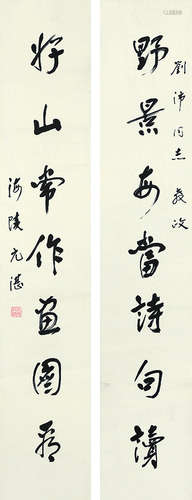 野景每當詩句讀
劉沛同志教政
好山常作画圖看
海陵